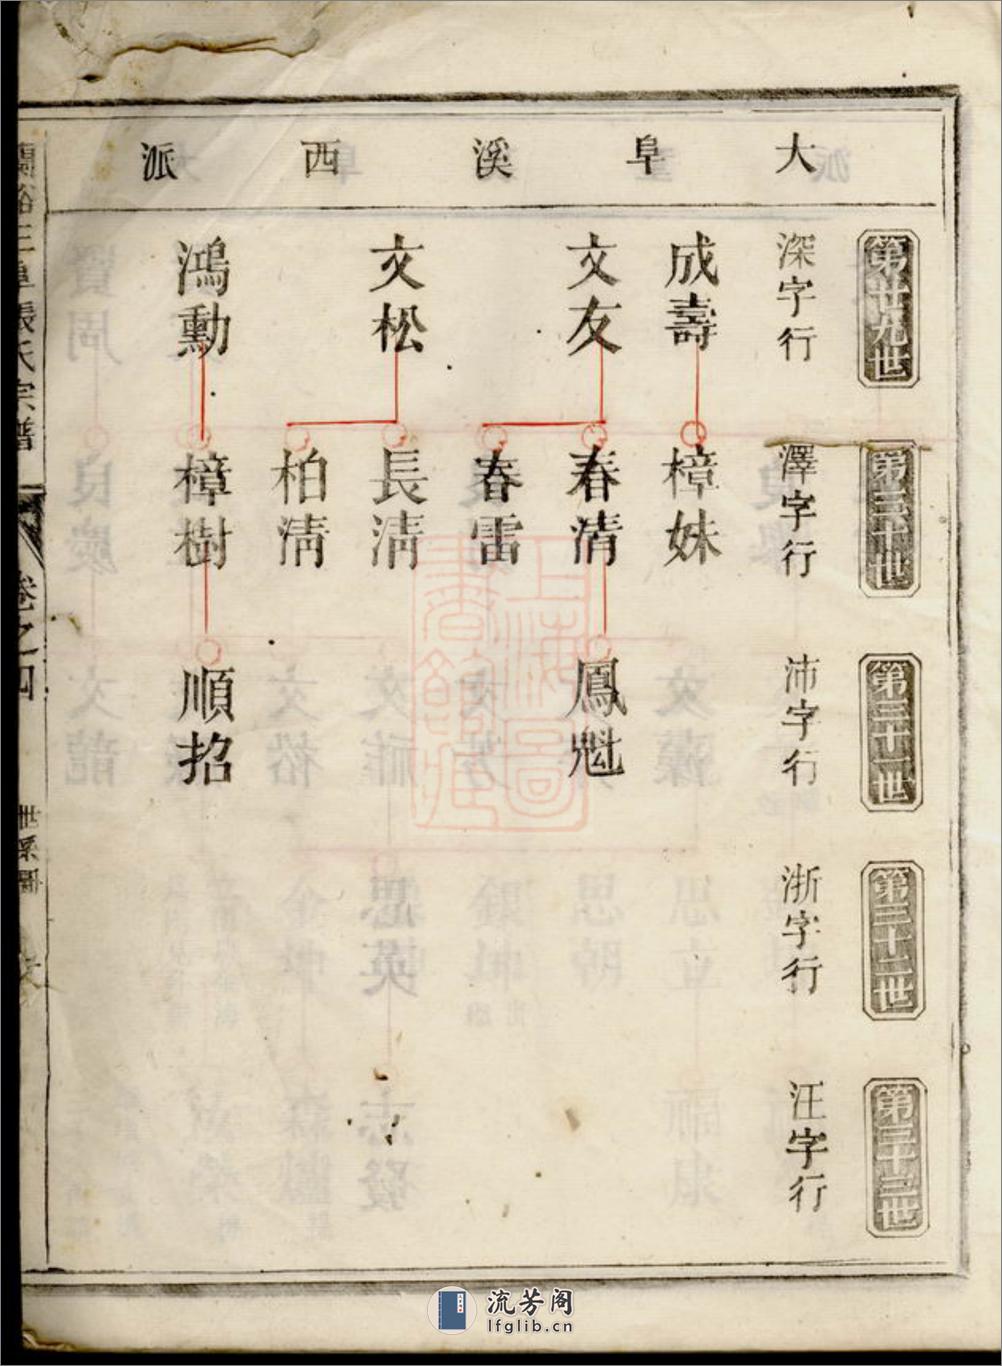 大阜溪西派
第廿九世
深字行
成壽
文友
文松
鴻勳
第三十世
澤字行
樟妹
春清
春雷
長清
柏清
樟樹
第三十一世
沛字行
鳳魁
順招
第三十二世
浙字行
第三十三世
汪字行
三阜張氏宗譜
卷之四
世系圖
上海圖書館藏
流芳阁
lfglib.cn